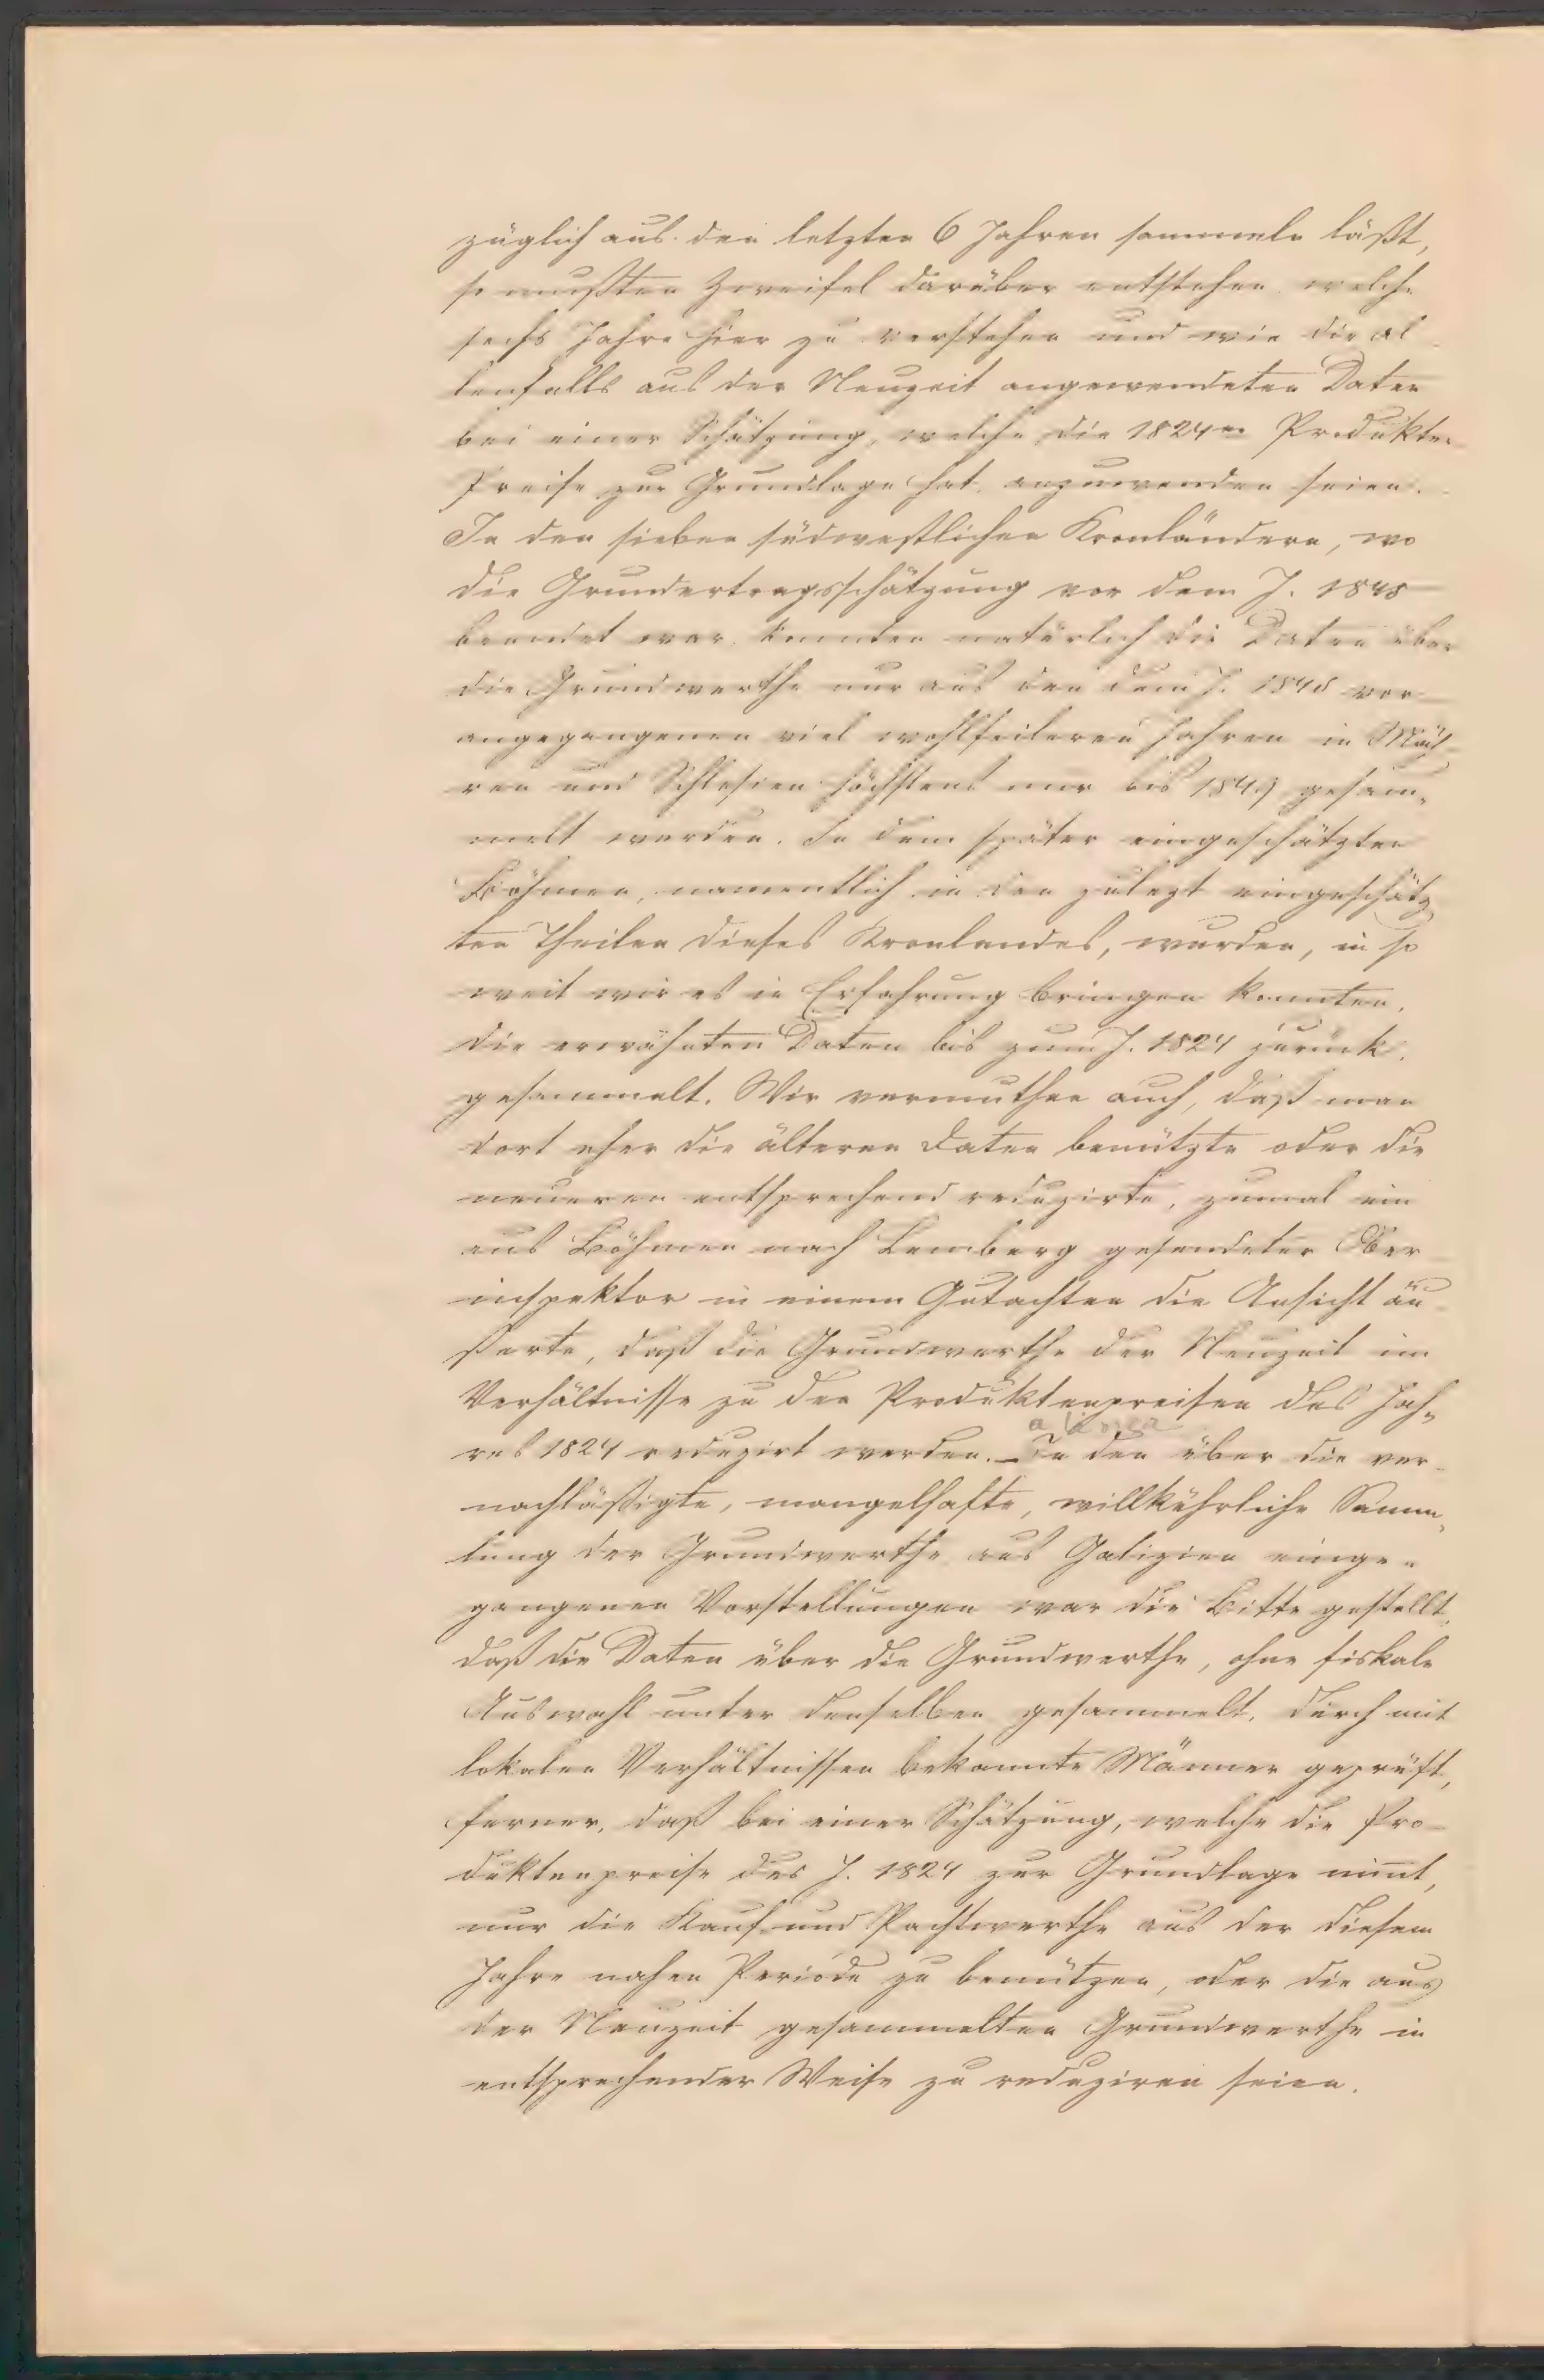 züglich aus den letzten 6 Jahren sammeln läßt,
so mußten Zweifel darüber entstehen, welche
sechs Jahre hier zu verstehen und wie die al
lenfalls aus der Neuzeit angewendeten Daten
bei einer Schätzung, welche die 1824er Produkten
Preise zur Grundlage hat, anzuwenden seien.
In den sieben südwestlichen Kronländern, wo
die Grundertragsschätzung vor dem J. 1848
beendet war, konnten natürlich die Daten über
die Grundwerthe nur aus den dem J. 1848 vor
angegangenen viel wohlfeileren Jahren in Mäh
ren und Schlesien höchstens nur bis 1849 gesam-
melt werden. In dem später eingeschätzten
Böhmen, namentlich in den zuletzt eingeschätz
ten Theilen dieses Kronlandes, wurden, in so
weit wir es in Erfahrung bringen konnten,
die erwähnten Daten bis zum J. 1824 zurück
gesammelt. Wir vermuthen auch, daß man
dort eher die älteren Daten benützte oder die
neueren entsprechend reduzirte, zumal ein
aus Böhmen nach Lemberg gesendeter Ober
inspektor in einem Gutachten die Ansicht äu
ßerte, daß die Grundwerthe der Neuzeit im
Verhältnisse zu den Produktenpreisen des Jah-
res 1824 reduzirt werden. – In den über die ver
nachläßigte, mangelhafte, willkührliche Samm-
lung der Grundwerthe aus Galizien einge-
gangenen Vorstellungen war die Bitte gestellt,
daß die Daten über die Grundwerthe, ohne fiskale
Auswahl unter denselben gesammelt, durch mit
lokalen Verhältnissen bekannte Männer geprüft,
ferner, daß bei einer Schätzung, welche die Pro-
duktenpreise des J. 1824 zur Grundlage nimt,
nur die Kauf und Pachtwerthe aus der diesem
Jahre nahen Periode zu benützen, oder die aus
der Neuzeit gesammelten Grundwerthe in
entsprechender Weise zu reduziren seien.